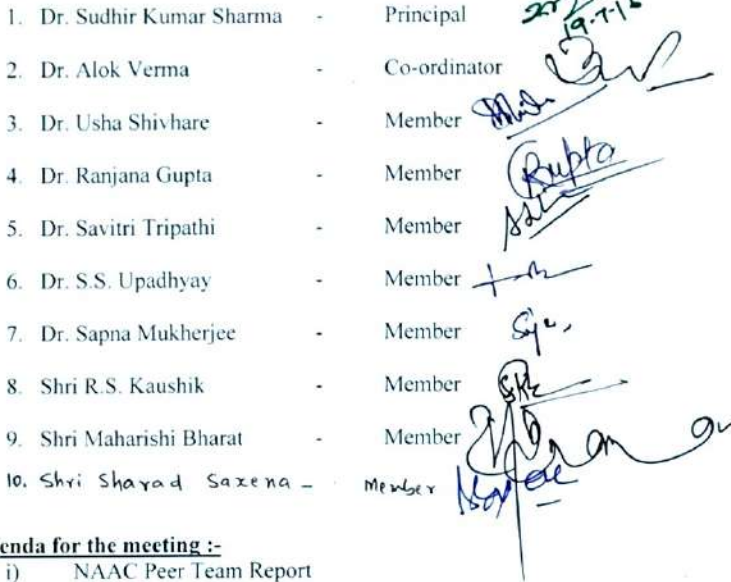 1. Dr. Sudhir Kumar Sharma - Principal
19-7-1
2. Dr. Alok Verma - Co-ordinator
3. Dr. Usha Shivhare - Member
4. Dr. Ranjana Gupta - Member Gupta
5. Dr. Savitri Tripathi - Member
6. Dr. S.S. Upadhyay - Member
7. Dr. Sapna Mukherjee - Member
8. Shri R.S. Kaushik - Member
9. Shri Maharishi Bharat - Member
10. Shri Sharad Saxena - Member
enda for the meeting :-
i) NAAC Peer Team Report